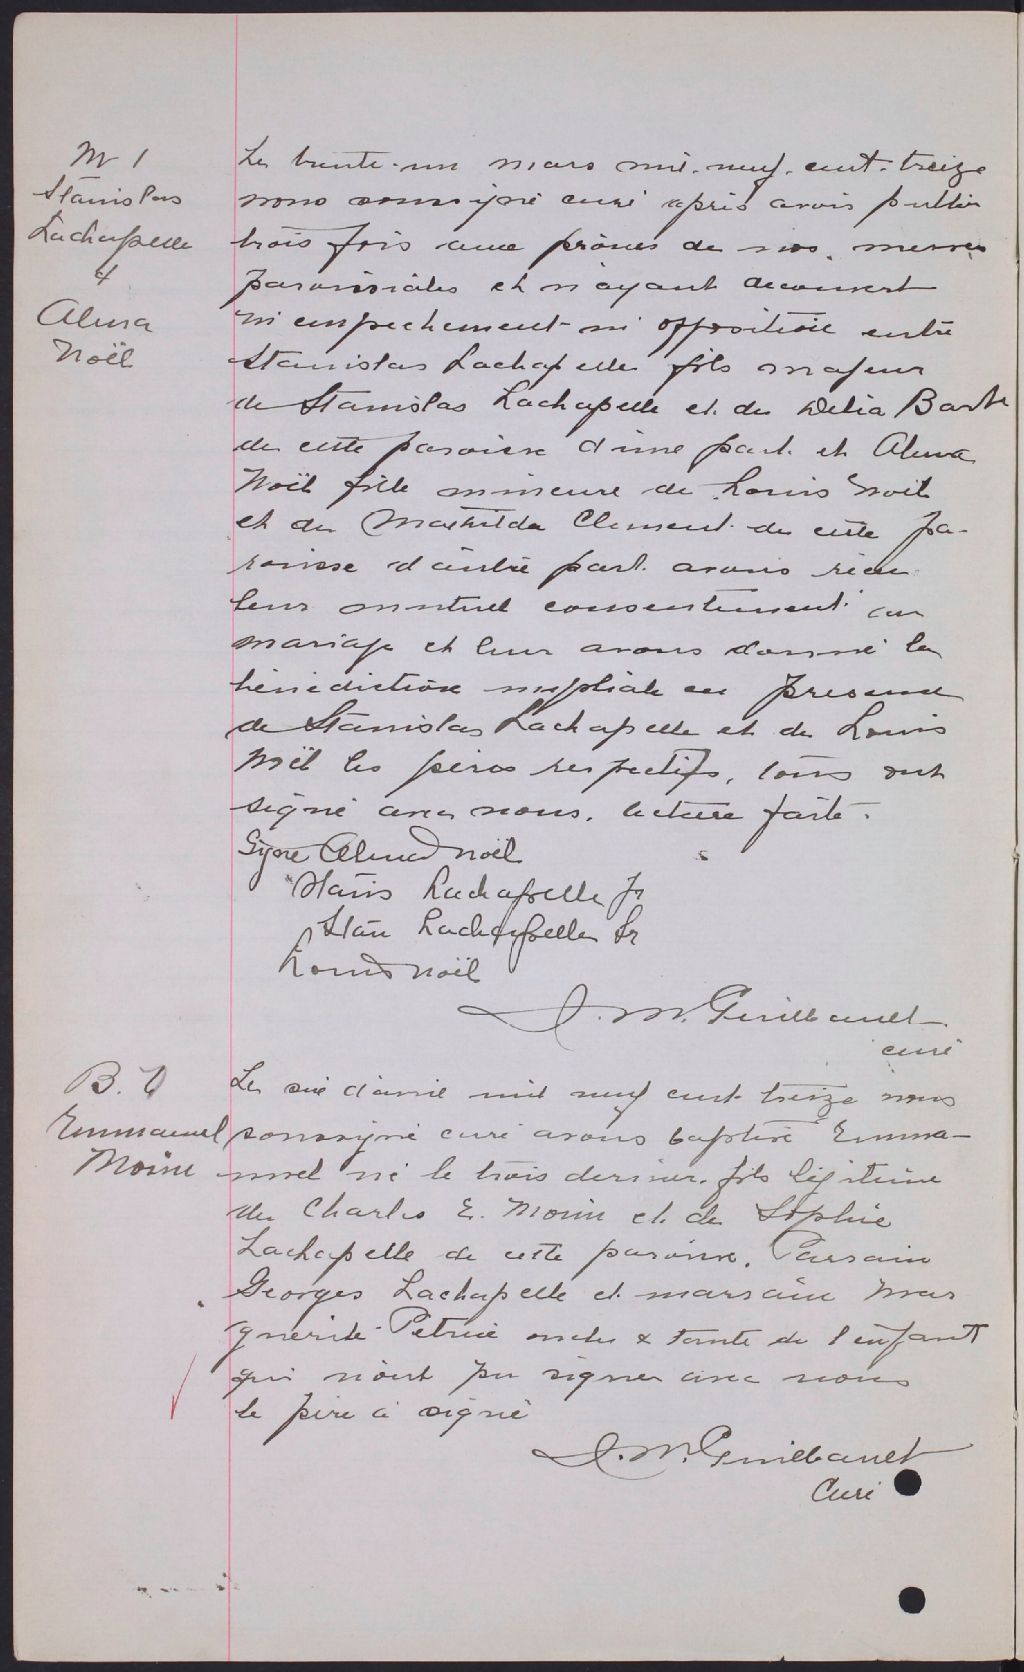 M 1
Stanislas
Lachapelle
&
Alma
Noël
Le trente-un mars mil-neuf-cent-treize
nous soussigné curé après avoir publié
trois fois aux prônes de nos messes
paroissiales et n'ayant découvert
ni empechement ni opposition entre
Stanislas Lachapelle fils majeur
de Stanislas Lachapelle et de Delia Barbe
de cette paroisse d'une part et Alma
Noël fille mineure de Louis Noël
et de Mathilda Clement de cette pa-
roisse d'autre part avons reçu
leur mutuel consentement au
mariage et leur avons donné la
bénédiction nuptiale en presence
de Stanislas Lachapelle et de Louis
Noël les pères respectifs, tous ont
signé avec nous, lecture faite.
Signé Alma Noël
Stanis Lachapelle Jr
Stan Lachapelle Sr
Louis Noël
J. M. Guilbault
curé
B.
Emmanuel
Morin
Le six d'avril mil neuf cent treize nous
soussigné curé avons baptisé Emma-
nuel né le trois dernier, fils légitime
de Charles E. Morin et de Sophie
Lachapelle de cette paroisse. Parrain
Georges Lachapelle et marraine Mar
guerite Petrie oncle & tante de l'enfant
qui n'ont pu signer avec nous
le père a signé
J. M. Guilbault
Curé